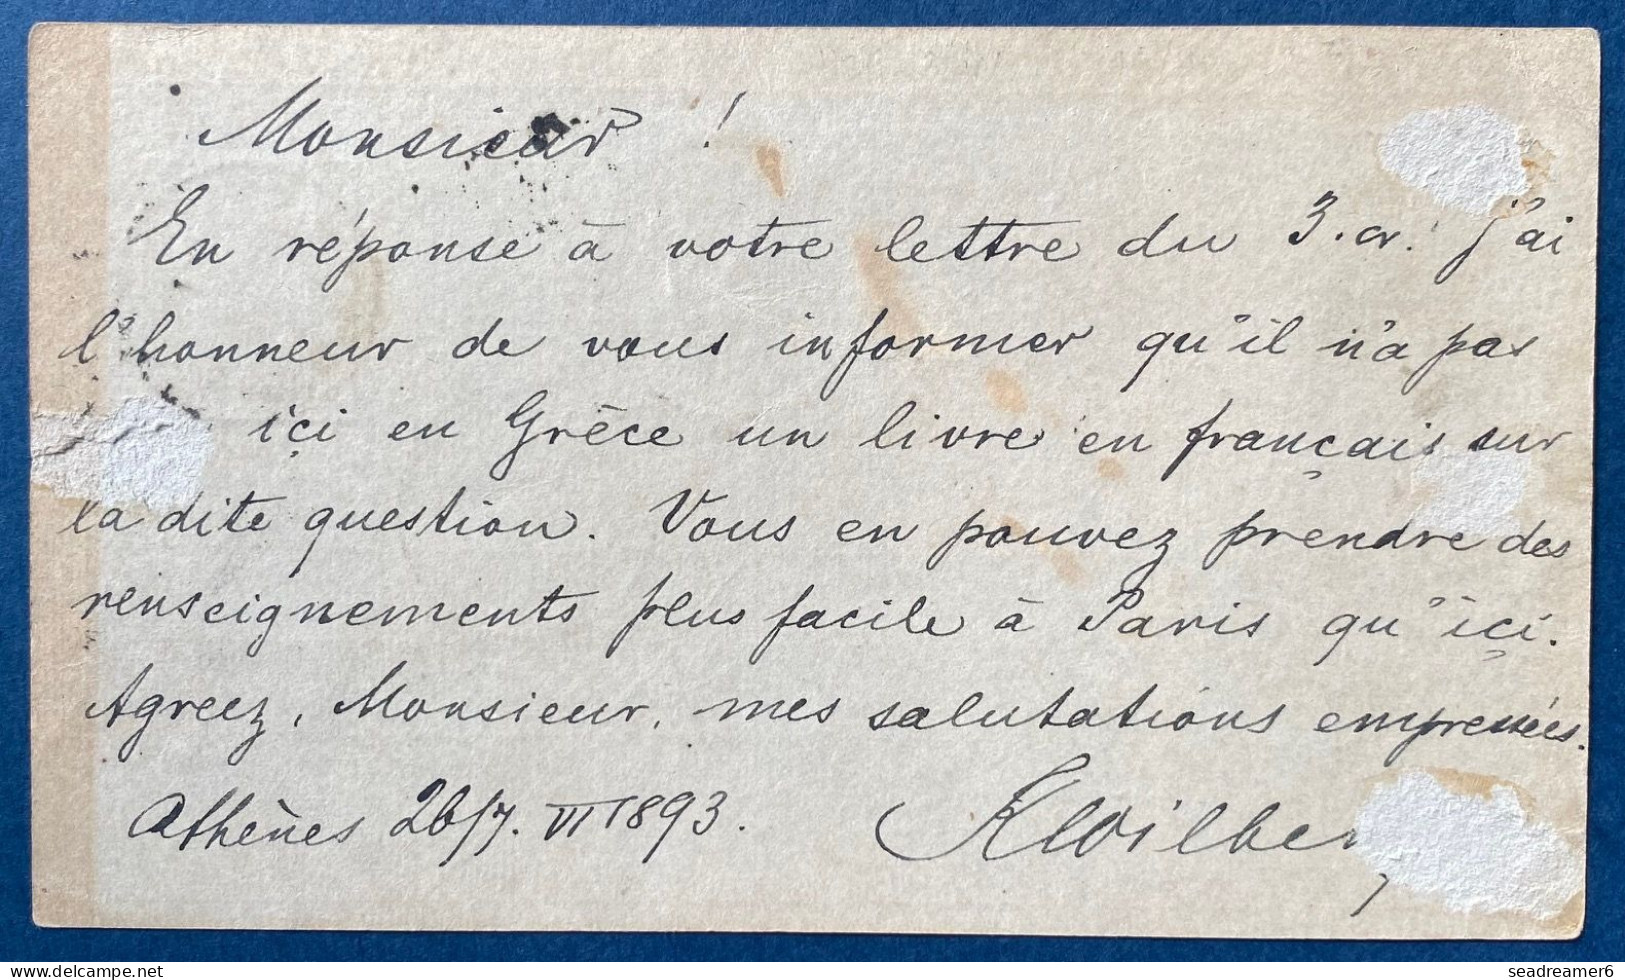 Monsieur !
En réponse à votre lettre du 3. cr. j'ai
l'honneur de vous informer qu'il n'a pas
içi en Grèce un livre en français sur
la dite question. Vous en pouvez prendre des
renseignements plus facile à Paris qu'içi.
Agreez, Monsieur, mes salutations empressées.
Athènes 26/7. VI 1893.
www.delcampe.net
seadreamer6